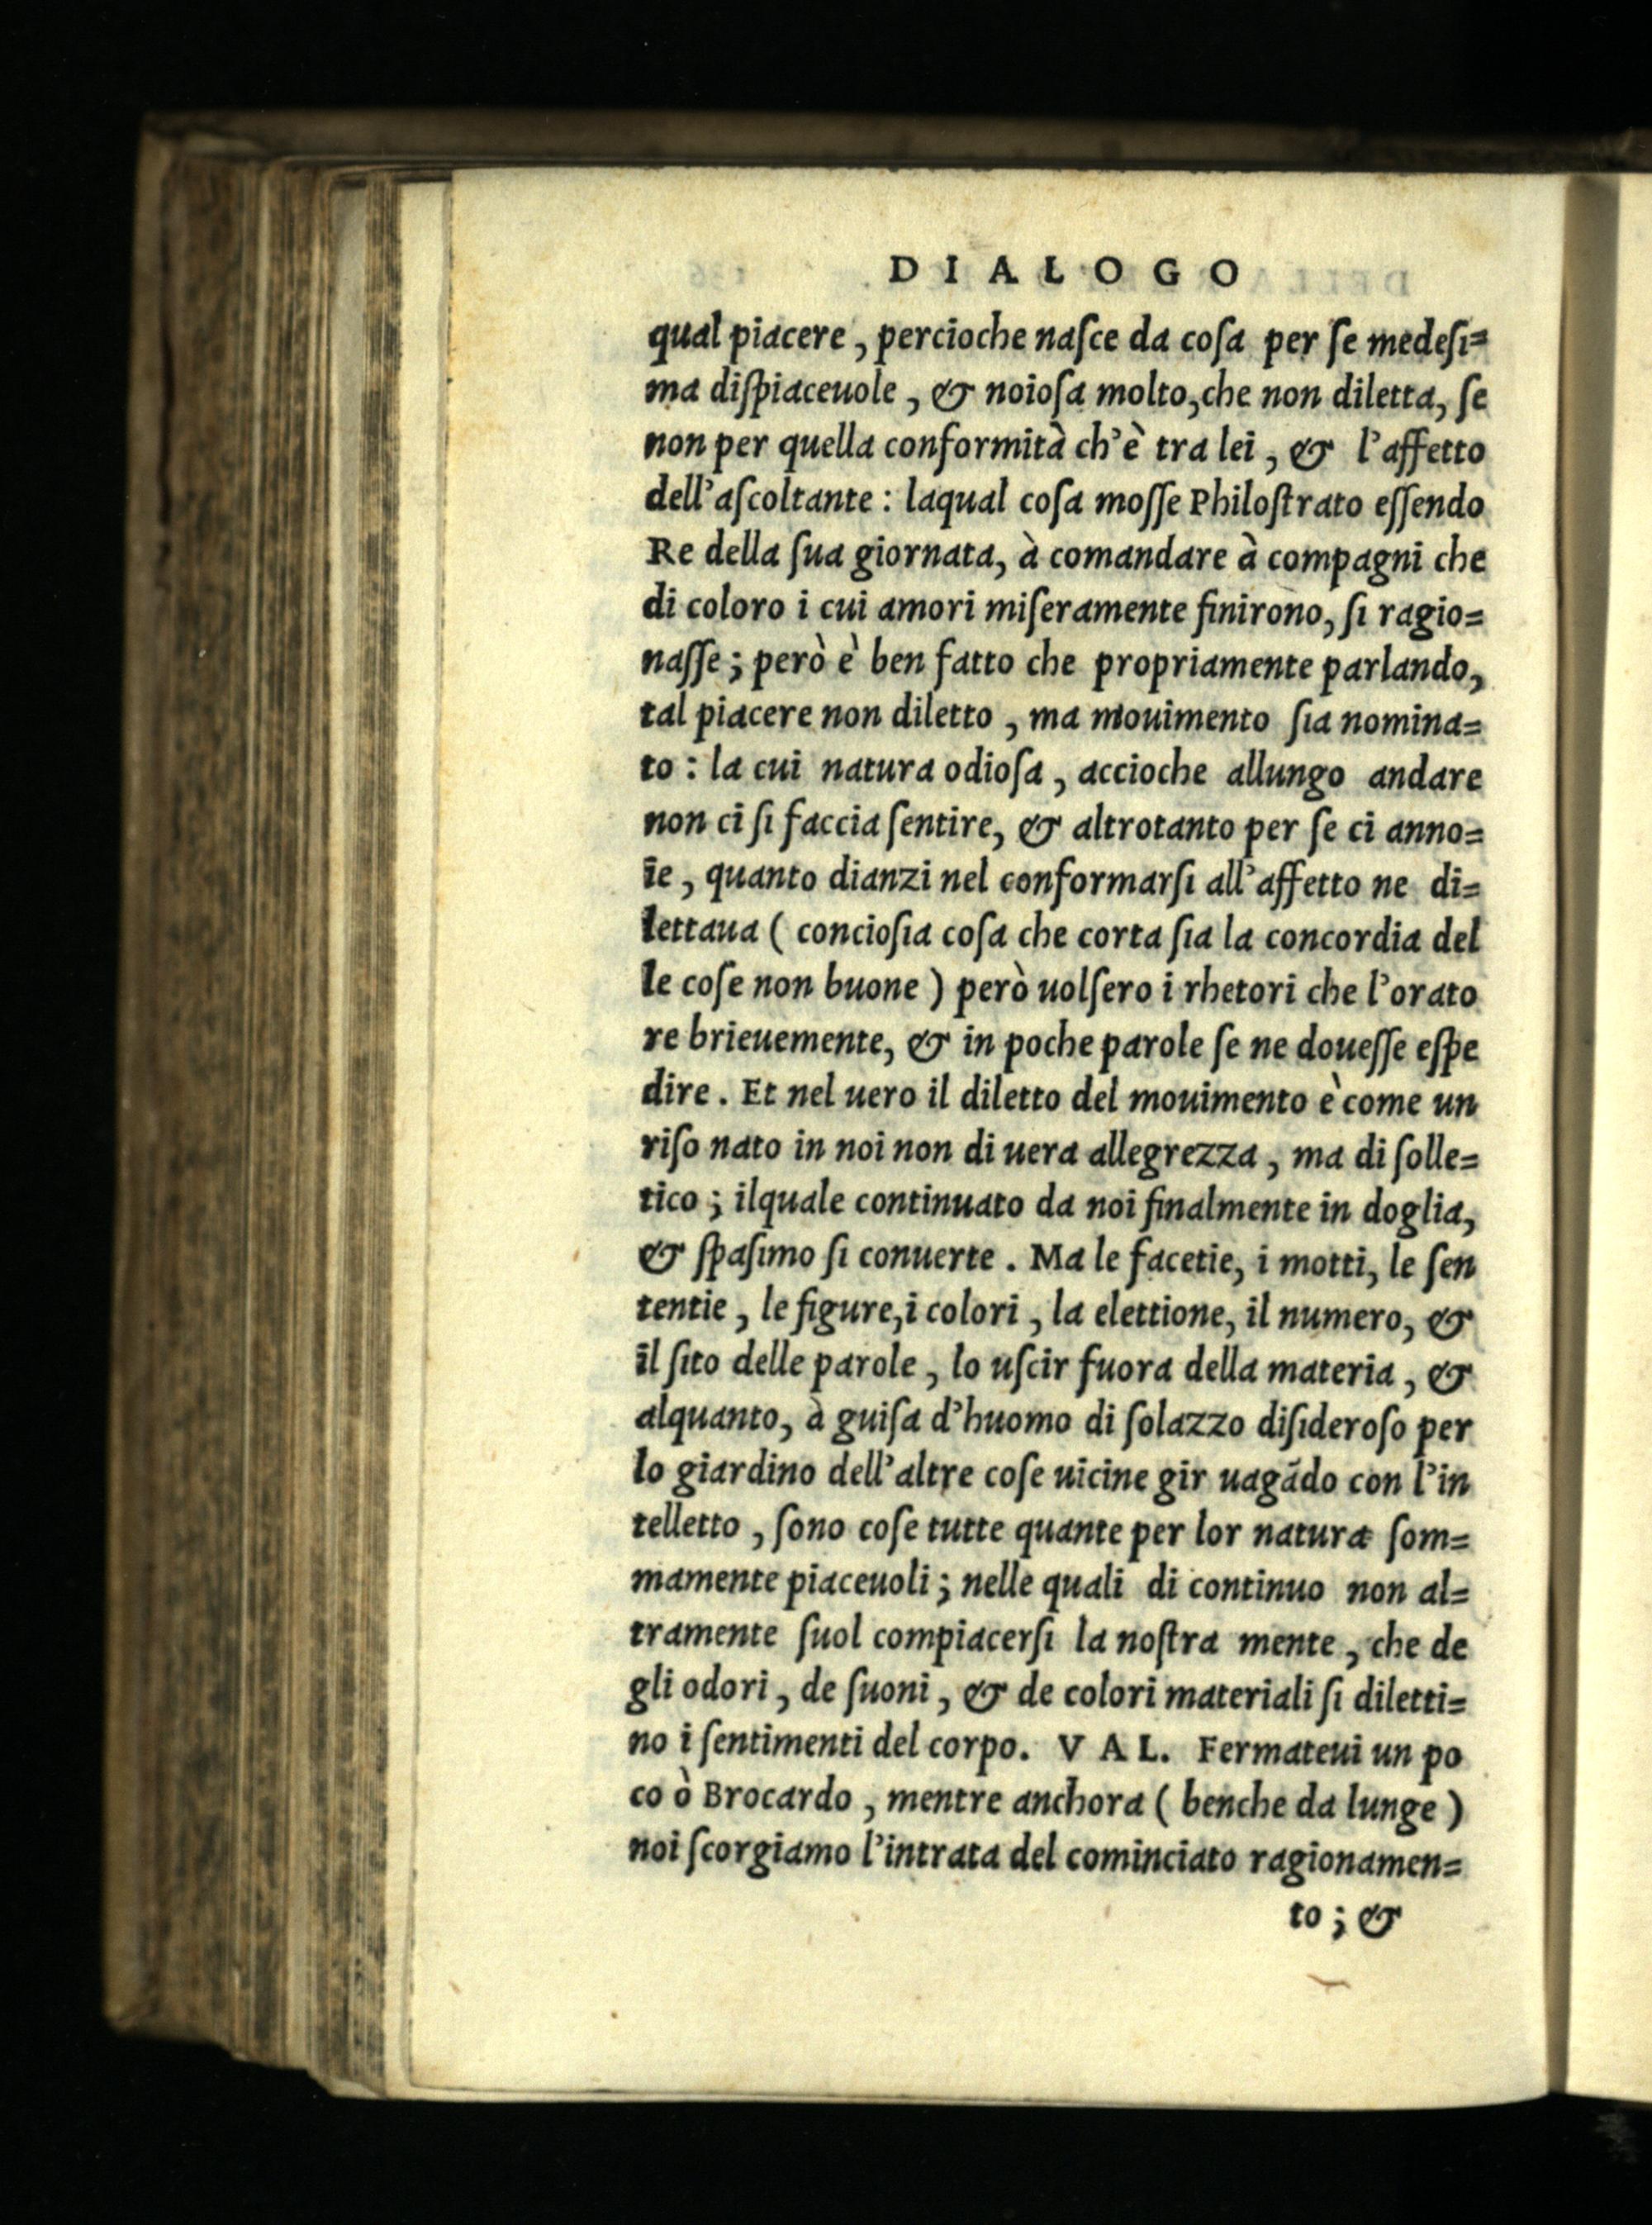 DIALOGO
qual piacere, percioche naſce da coſa per ſe medeſi=
ma diſpiaceuole, & noioſa molto, che non diletta, ſe
non per quella conformità ch'è tra lei, & l'affetto
dell'aſcoltante: laqual coſa moſſe Philoſtrato eſſendo
Re della ſua giornata, à comandare à compagni che
di coloro i cui amori miſeramente finirono, ſi ragio=
naſſe; però è ben fatto che propriamente parlando,
tal piacere non diletto, ma mouimento ſia nomina=
to: la cui natura odioſa, accioche allungo andare
non ci ſi faccia ſentire, & altrotanto per ſe ci anno=
ie, quanto dianzi nel conformarſi all'affetto ne di=
lettaua (concioſia coſa che corta ſia la concordia del
le coſe non buone) però uolſero i rhetori che l'orato
re brieuemente, & in poche parole ſe ne doueſſe eſpe
dire. Et nel uero il diletto del mouimento è come un
riſo nato in noi non di uera allegrezza, ma di ſolle=
tico; ilquale continuato da noi finalmente in doglia,
& ſpaſimo ſi conuerte. Ma le facetie, i motti, le ſen
tentie, le figure, i colori, la elettione, il numero, &
il ſito delle parole, lo uſcir fuora della materia, &
alquanto, à guiſa d'huomo di ſolazzo diſideroſo per
lo giardino dell'altre coſe uicine gir uagãdo con l'in
telletto, ſono coſe tutte quante per lor natura ſom=
mamente piaceuoli; nelle quali di continuo non al=
tramente ſuol compiacerſi la noſtra mente, che de
gli odori, de ſuoni, & de colori materiali ſi diletti=
no i ſentimenti del corpo. VAL. Fermateui un po
co ò Brocardo, mentre anchora (benche da lunge)
noi ſcorgiamo l'intrata del cominciato ragionamen=
to; &